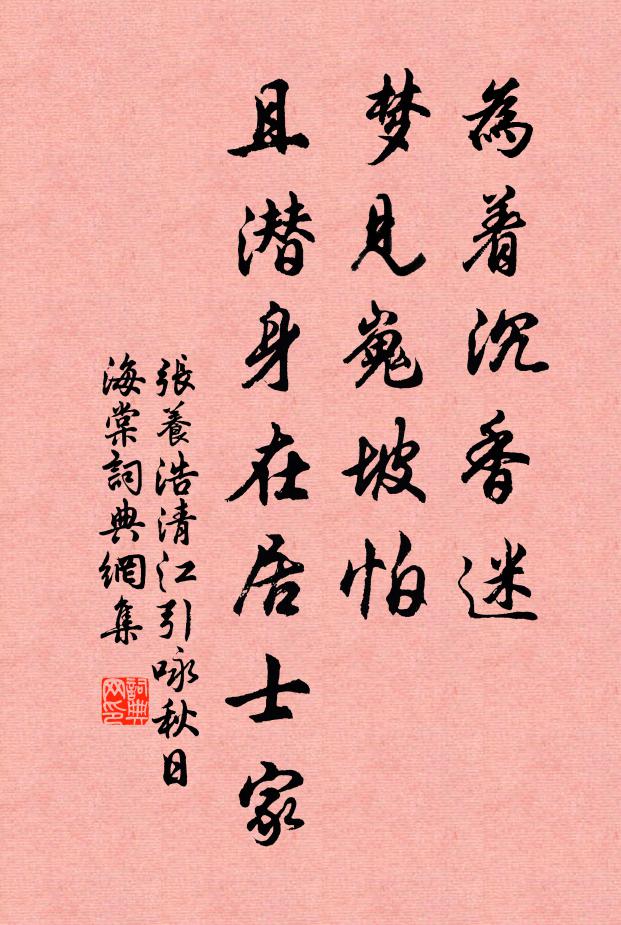 為着沉香迷
梦見嵬坡怕
且潜身在居士家
張養浩清江引咏秋日
海棠詞典網集
詞典
网印